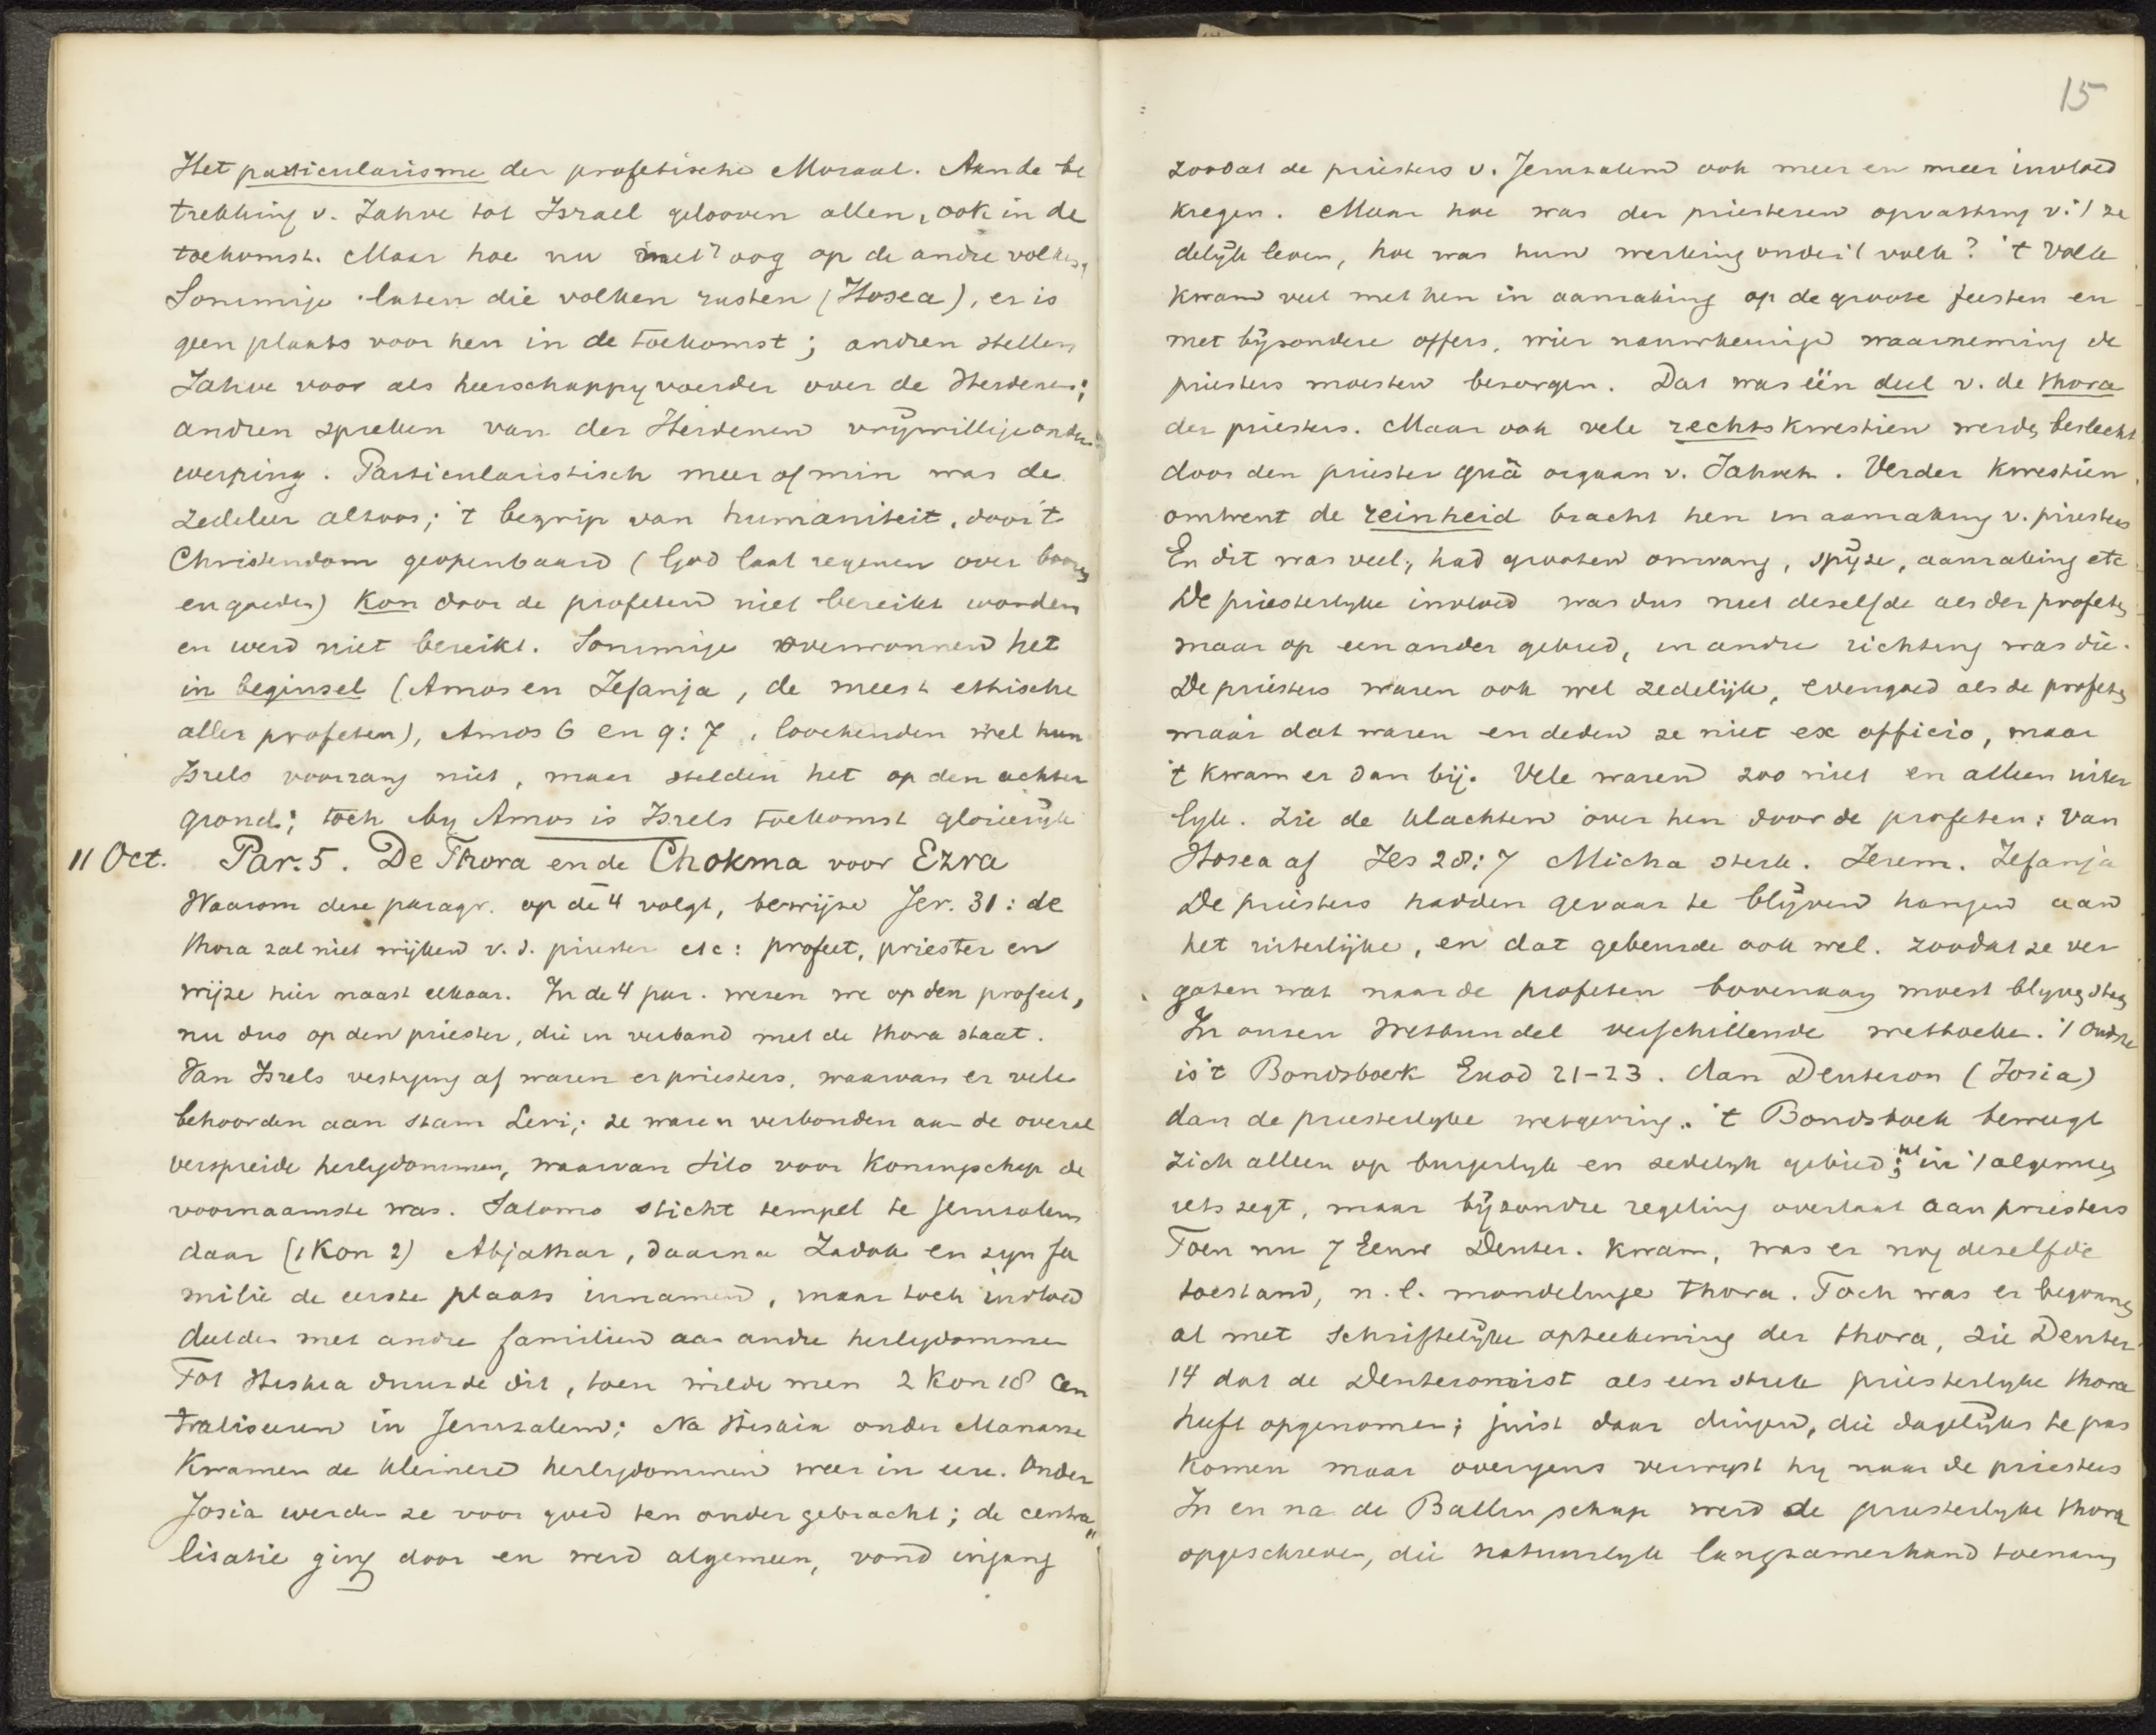 Het particularisme der profetische Moraal. Aan de be
trekking v. Jahve tot Israel gelooven allen, ook in de
toekomst. Maar hoe nu met 't oog op de andre volken,
Sommige laten die volken rusten (Hosea), er is
geen plaats voor hen in de toekomst; andren stellen
Jahve voor als heerschappyvoerder over de Heidenen;
andren spreken van der Heidenen vrÿwillige onder
werping. Particularistisch meer of min was de
zedeleer altoos; 't begrip van humaniteit, door 't
Christendom geopenbaard (God laat regenen over boozen
en goeden) kon door de profeten niet bereikt worden
en werd niet bereikt. Sommige overwonnen het
in beginsel (Amos en Zefanja, de meest ethische
aller profeten), Amos 6 en 9:7, loochenden wel hun
Isrels voorrang niet, maar stelden het op den achter
grond; toch by Amos is Isrels toekomst glorierÿk
11 Oct. Par. 5. De Thora en de Chokma voor Ezra
Waarom deze paragr. op de 4 volgt, bewijze Jer. 31: de
thora zal niet wijken v. d. priester etc: profeet, priester en
wijze hier naast elkaar. In de 4 par. wezen we op den profeet,
nu dus op den priester, die in verband met de thora staat.
Van Isrels vestiging af waren er priesters, waarvan er vele
behoorden aan stam Levi; ze waren verbonden aan de overal
verspreide heiligdommen, waarvan Silo voor koningschap de
voornaamste was. Salomo sticht tempel te Jeruzalem
daar (1 Kon 2) Abjathar, daarna Zadok en zyn fa
milie de eerste plaats innamen, maar toch invloed
deelden met andre familien aan andre heiligdommen
Tot Hiskia duurde dit, toen wilde men 2 Kon 18 cen
traliseeren in Jeruzalem; Na Hiskia onder Manasse
kwamen de kleinere heiligdommen weer in eere. Onder
Josia werden ze voor goed ten onder gebracht; de centra
lisatie ging door en werd algemeen, vond ingang
15
zoodat de priesters v. Jeruzalem ook meer en meer invloed
kregen. Maar hoe was der priesteren opvatting v. 't ze
delÿk leven, hoe was hun werking onder 't volk? 't Volk
kwam veel met hen in aanraking op de groote feesten en
met bÿzondere offers, wier nauwkeurige waarneming de
priesters moesten bezorgen. Dat was één deel v. de thora
der priesters. Maar ook vele rechtskwestien werden beslecht
door den priester quâ orgaan v. Jahveh. Verder kwestien
omtrent de reinheid bracht hen in aanraking v. priesters
En dit was veel, had grooten omvang, spÿze, aanraking etc
De priesterlyke invloed was dus niet dezelfde als der profeten
maar op een ander gebied, in andre richting was die.
De priesters waren ook wel zedelijk, evengoed als de profeten
maar dat waren en deden ze niet ex officio, maar
't kwam er dan bij. Vele waren zoo niet en alleen uiter
lyk. Zie de klachten over hen door de profeten: van
Hosea af Jes 28:7 Micha sterk. Jerem. Zefanja
De priesters hadden gevaar te blÿven hangen aan
het uiterlijke, en dat gebeurde ook wel. zoodat ze ver
gaten wat naar de profeten bovenaan moest blyven staan
In onzen Wetbundel verschillende wetboeken. 't Oudste
is 't Bondsboek Exod 21-23. dan Deuteron (Josia)
dan de priesterlyke wetgeving. 't Bondsboek beweegt
zich alleen op burgerlyk en zedelyk gebied; wel in 't algemeen
iets zegt, maar bÿzondre regeling overlaat aan priesters
Toen nu 7 Eeuw Deuter. kwam, was er nog dezelfde
toestand, n.l. mondelinge thora. Toch was er begonnen
al met schriftelÿke opteekening der thora, zie Deuter
14 dat de Deuteronomist als een stuk priesterlyke thora
heeft opgenomen; juist daar dingen, die dagelÿks te pas
komen maar overigens verwyst hy naar de priesters
In en na de Ballingschap werd de priesterlyke thora
opgeschreven, die natuurlyk langzamerhand toenam